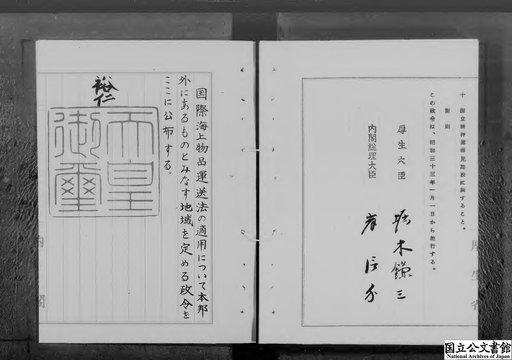 十 国立精神療養所に関すること。
附則
この政令は、昭和三十三年一月一日から施行する。
厚生大臣
堀木鎌三
内閣総理大臣
岸信介
国際海上物品運送法の適用について本邦
外にあるものとみなす地域を定める政令を
ここに公布する。
裕仁
天皇
御璽
内閣
国立公文書館
National Archives of Japan